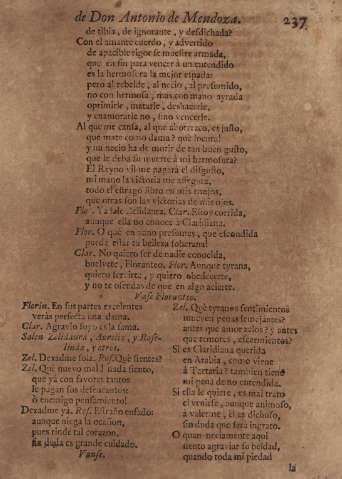 de Don Antonio de Mendoza. 237
de tibia, de ignorante, y desdichada?
Con el amante cuerdo, y advertido
de apacible rigor se muestre armada,
que en fin para vencer à un entendido
es la hermosura la mejor espada:
pero al rebelde, al necio, al presumido,
no con hermosa, mas con mano ayrada
oprimirle, matarle, deshacerle,
y enamorarle no, sino vencerle.
Al que me cansa, al que aborrezco, es justo,
que mate como dama? que locura!
y un necio ha de morir de tan buen gusto,
que le deba su muerte à mi hermosura?
El Reyno vil me pagarà el disgusto,
mi mano la victoria me assegura,
todo el estrago libro en mis enojos,
que otras son las victorias de mis ojos.
Flor. Ya sale Zelidaura, Clar. Estoy corrida,
aunque ella no conoce à Claridiana.
Flor. O què en vano presumes, que escondida
puede estàr tu belleza soberana!
Clar. No quiero ser de nadie conocida,
buelvete, Floranteo. Flor. Aunque tyrana,
quiero servirte, y quiero obedecerte,
y no te ofendas de que en algo acierte.
Vase Floranteo.
Florin. En sus partes excelentes
veràs perfecta una dama.
Clar. Agravio suyo es la fama.
Salen Zelidaura, Aurelio, y Rose-
linda, y
Zel. Dexadme sola. Ros. Què sientes?
Zel. Què nuevo mal! nada siento,
que yà con favores tantos
le pagan sus
ò enemigo pensamiento!
Dexadme yà. Ros. Estraño enfado:
aunque niega la ocasion,
pues rinde tal corazon,
sin duda es grande cuidado.
Vanse.
Zel. Què tyranos sentimientos
mueven penas semejantes?
antes que amor zelos? y antes
que temores, escarmientos?
Si es Claridiana querida
en Arabia, como viene
à Tartaria? tambien tiene
mi pena de no entendida.
Si ella le quiere, es mal trato
el venirse, aunque animoso,
à valerme, èl es dichoso,
sin duda que serà ingrato.
O quan neciamente aqui
siento agraviar su beldad,
quando toda mi piedad
la